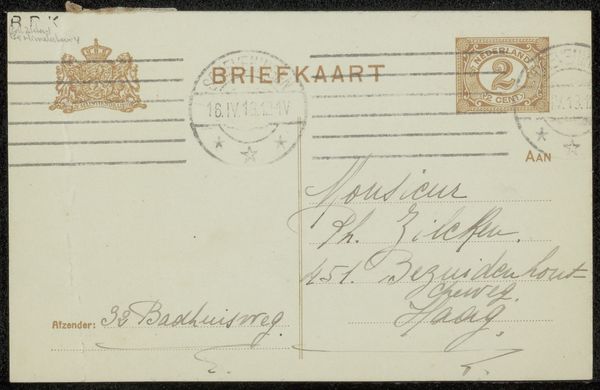 B.P.K
BRIEFKAART
NEDERLAND
2
½ CENT
SCHEVENINGEN
16.IV.13.
AAN
Monsieur
Ph. Zilcken.
451. Bezuidenhout
Haag.
Afzender: 33 Badhuisweg.